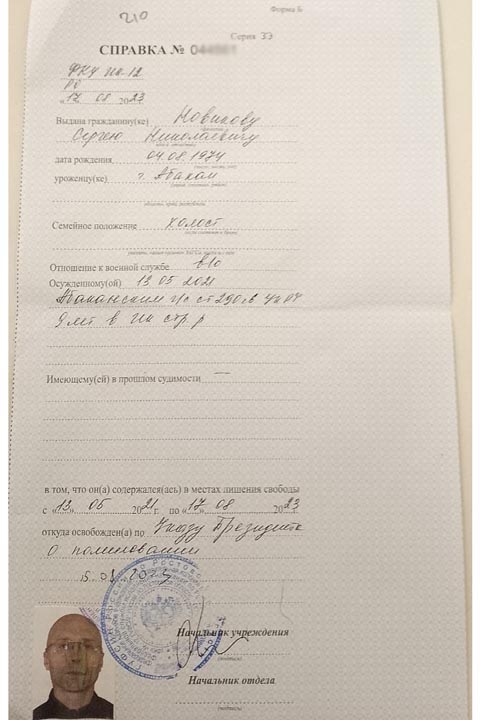 Форма Б
210
Серия ЗЭ
СПРАВКА №
ФКУ ИК-12
РО
«17» 08 2023
Выдана гражданину(ке) Новикову
Сергею Николаевичу
дата рождения 04.08.1974
уроженцу(ке) г. Абакан
Семейное положение холост
Отношение к военной службе в/о
Осужденному(ой) 13 05 2021
Абаканским г/с ст 290 ч 6 УК РФ
9 лет в ИК стр. р
Имеющему(ей) в прошлом судимости —
в том, что он(а) содержался(ась) в местах лишения свободы
с «13» 05 2021 г. по «17» 08 2023
откуда освобожден(а) по Указу Президента
О помиловании
Начальник учреждения
(подпись)
Начальник отдела
(подпись)